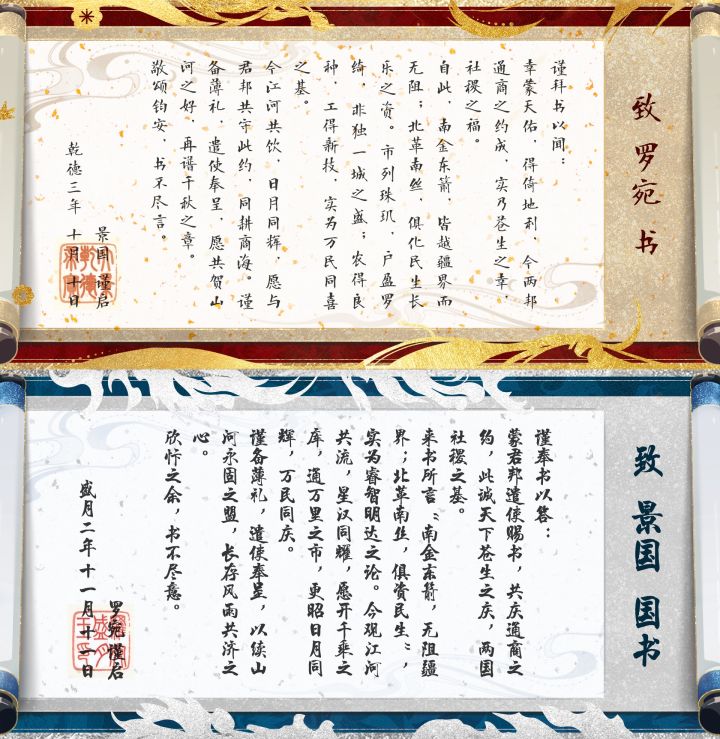 致 罗宛 书
谨科书以闻：
幸蒙天佑，得倚地利，今两邦
通商之约成，实乃苍生之幸，
社稷之福。
自此，南金东箭，皆越疆界而
无阻；北革南丝，俱化民生长
乐之资。市列珠玑，户盈罗
绮，非独一城之盛；农得良
种，工得新技，实为万民同喜
之基。
今江河共饮，日月同辉，愿与
君邦共守此约，同耕商海。谨
备薄礼，遣使奉呈，愿共贺山
河之好，再谱千秋之章。
敬颂钧安，书不尽言。
景国 谨启
乾德三年 十月 十日
致 景国 国书
谨奉书以答：
蒙君邦遣使赐书，共庆通商之
约，此诚天下苍生之庆，两国
社稷之基。
来书所言“南金东箭，无阻疆
界；北革南丝，俱资民生”，
实为睿智明达之论。今观江河
共流，星汉同耀，愿开千乘之
库，通万里之市，更昭日月同
辉，万民同庆。
谨备薄礼，遣使奉呈，以续山
河永固之盟，长存风雨共济之
心。
欣忭之余，书不尽意。
罗宛 谨启
盛月二年十一月十一日